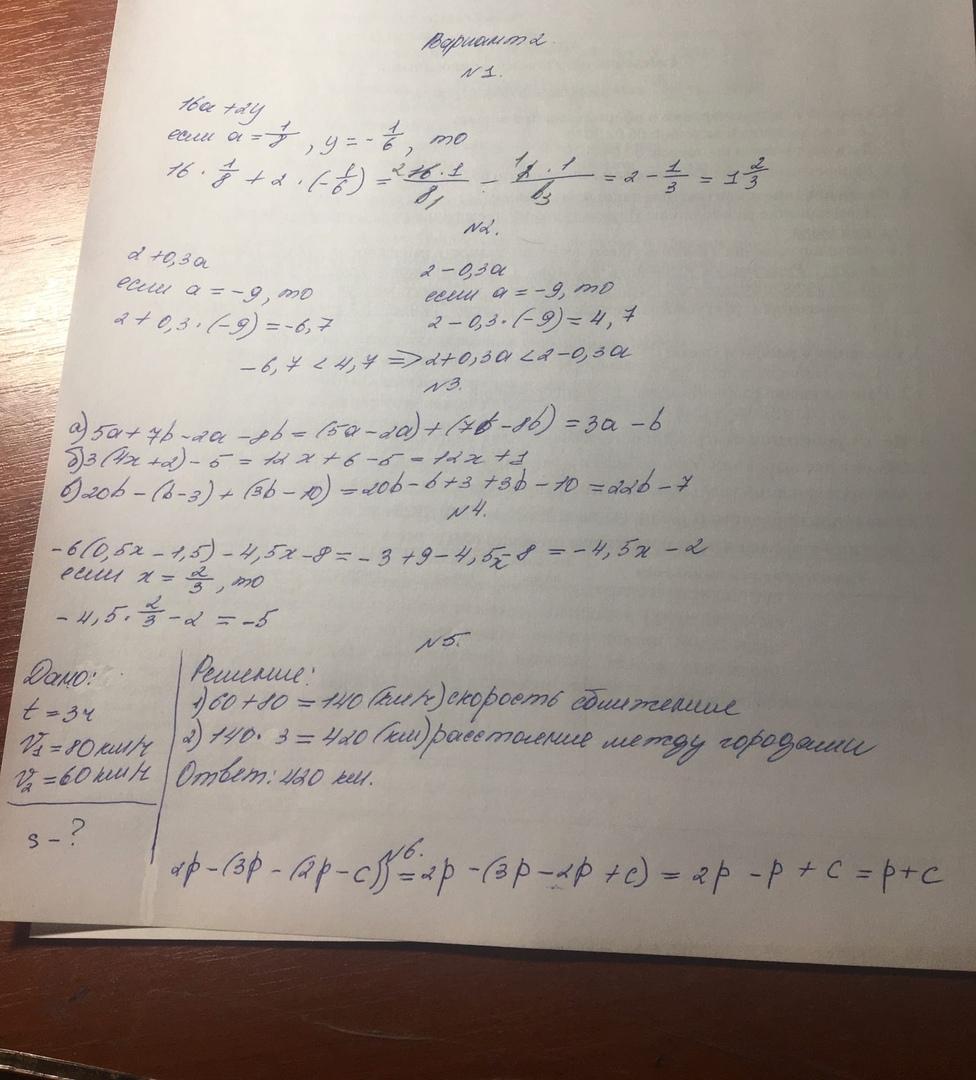 Вариант 2.
№1.
16a + 2y
если a = 1/8, y = -1/6, то
16 · 1/8 + 2 · (-1/6) = 16 · 1/8 - 2 · 1/6 = 2 - 1/3 = 1 2/3
№2.
2 + 0,3a
2 - 0,3a
если a = -9, то
если a = -9, то
2 + 0,3 · (-9) = -6,7
2 - 0,3 · (-9) = 4,7
-6,7 < 4,7 => 2+0,3a < 2-0,3a
№3.
а) 5a + 7b - 2a - 8b = (5a - 2a) + (7b - 8b) = 3a - b
б) 3(4x + 2) - 5 = 12x + 6 - 5 = 12x + 1
в) 20b - (b - 3) + (3b - 10) = 20b - b + 3 + 3b - 10 = 22b - 7
№4.
-6(0,5x - 1,5) - 4,5x - 8 = -3 + 9 - 4,5x - 8 = -4,5x - 2
если x = 2/3, то
-4,5 · 2/3 - 2 = -5
№5.
Дано:
t = 3ч
V1 = 80 км/ч
V2 = 60 км/ч
s - ?
Решение:
1) 60 + 80 = 140 (км/ч) скорость сближение
2) 140 · 3 = 420 (км) расстояние между городами
Ответ: 420 км.
№6.
2p - (3p - (2p - c)) = 2p - (3p - 2p + c) = 2p - p + c = p + c